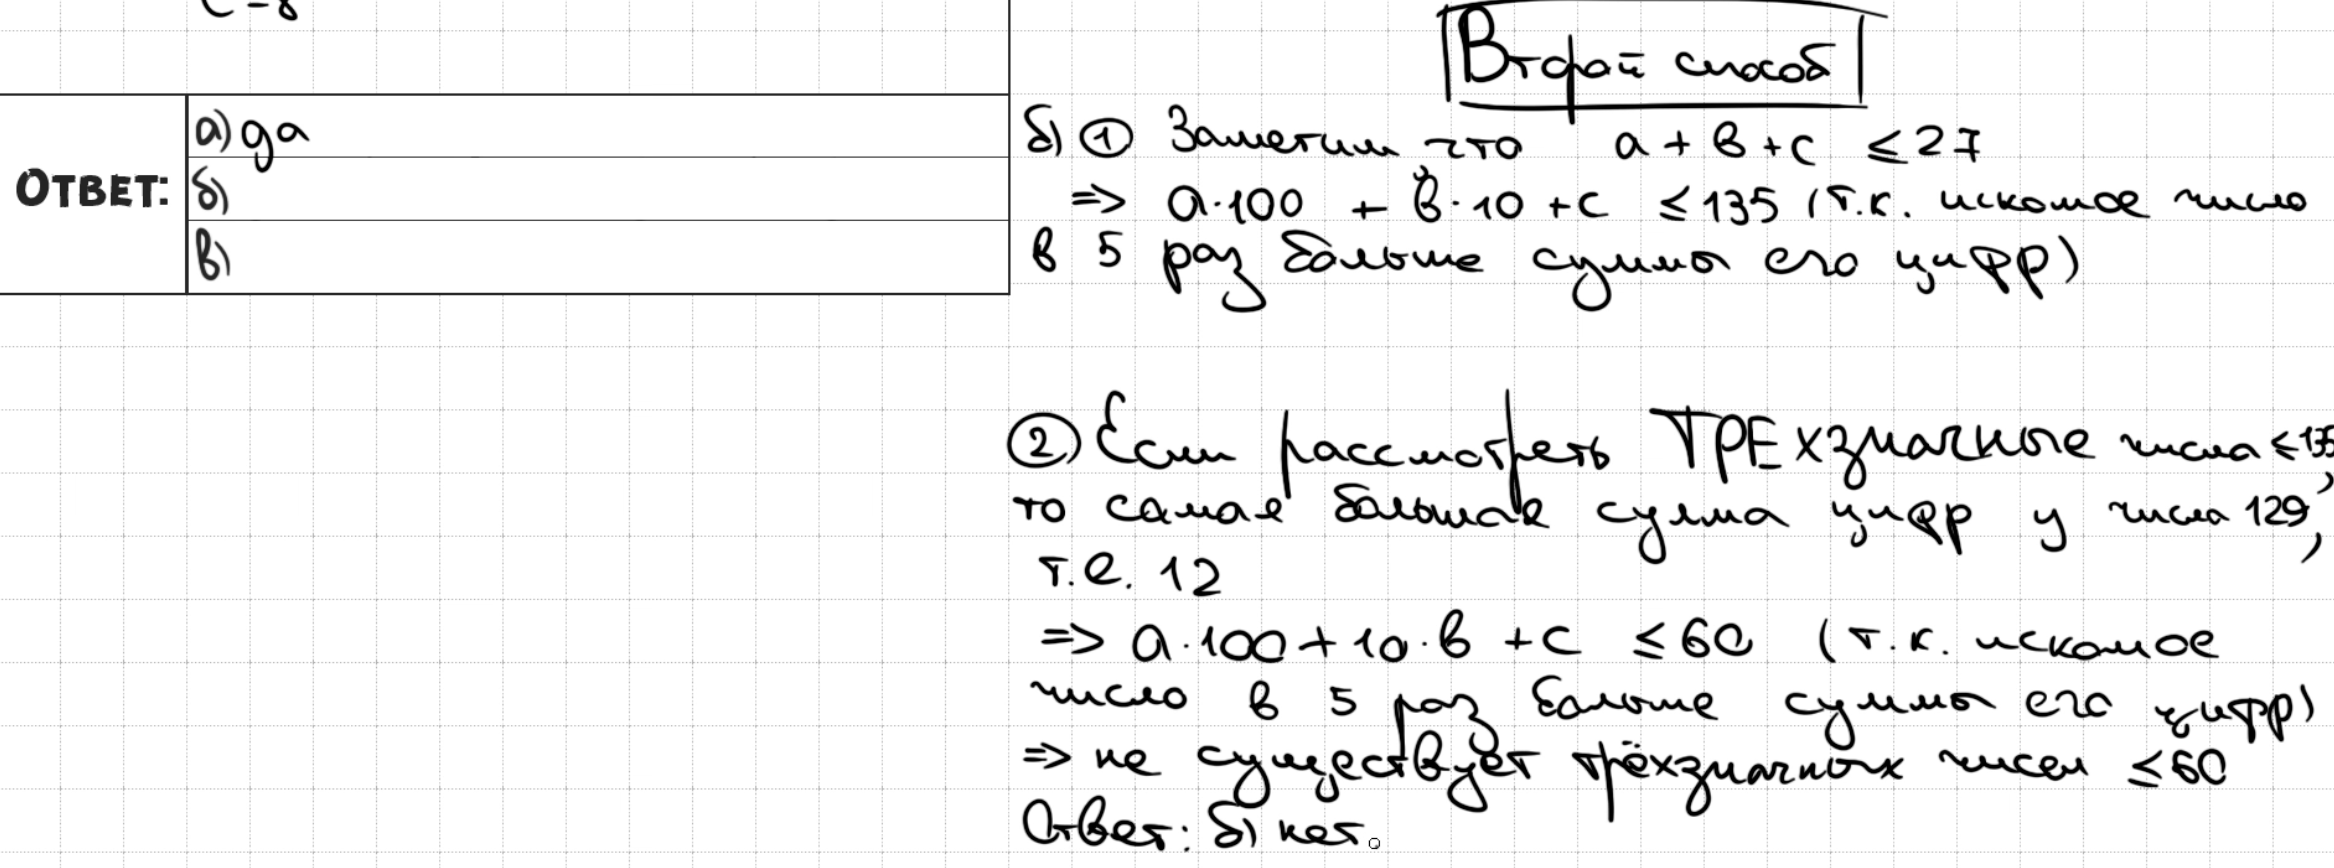 c = 8
ОТВЕТ:
а) да
б)
в)
Второй способ
б) ① Заметим, что a + b + c ≤ 27
=> a·100 + b·10 + c ≤ 135 (т.к. искомое число
в 5 раз больше суммы его цифр)
② Если рассмотреть ТРЕхзначные числа ≤ 135,
то самая большая сумма цифр у числа 129,
т.е. 12
=> a·100 + 10·b + c ≤ 60 (т.к. искомое
число в 5 раз больше суммы его цифр)
=> не существует трёхзначных чисел ≤ 60
Ответ: б) нет.